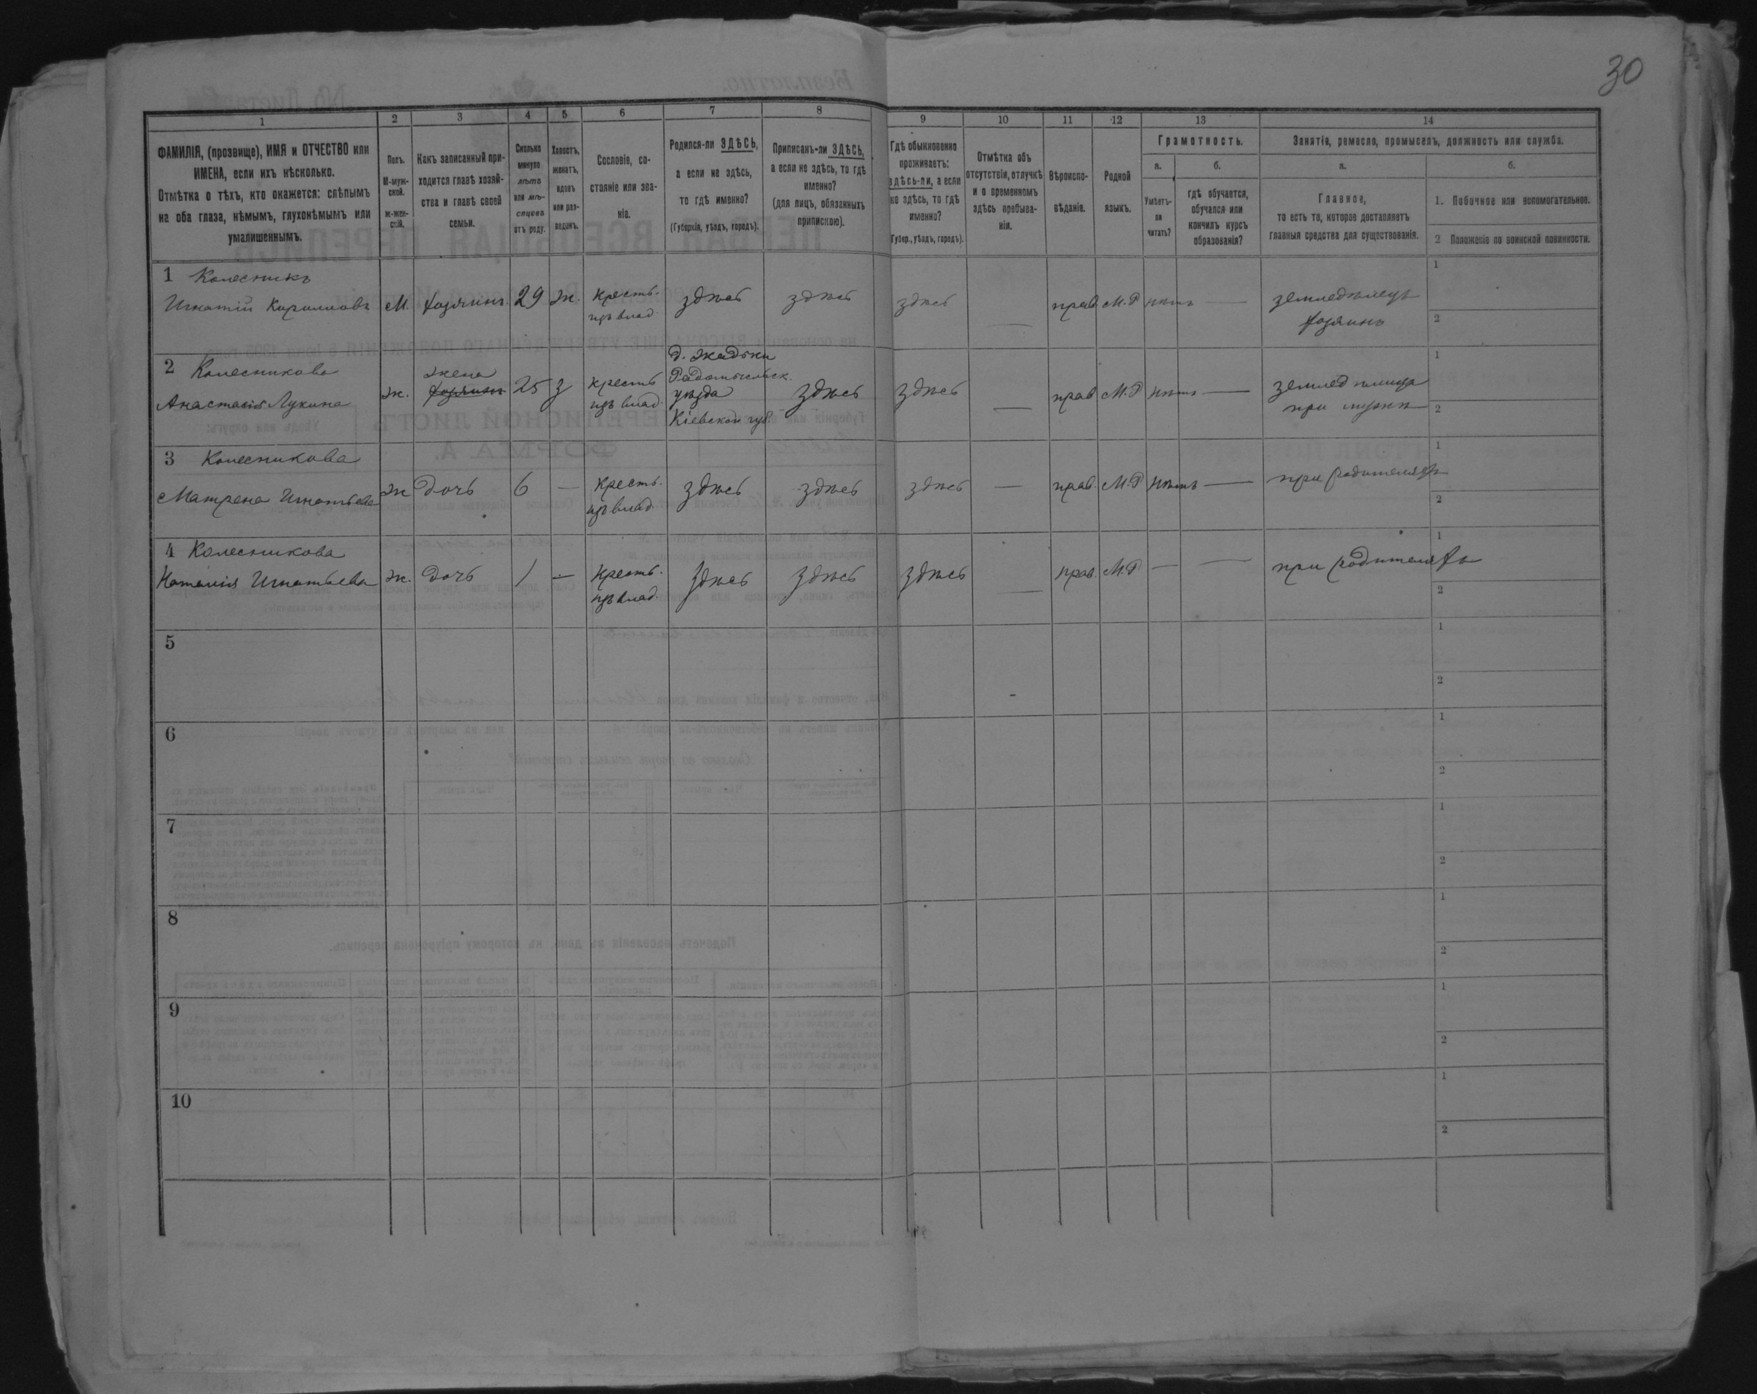 30
1 2 3 4 5 6 7 8 9 10 11 12 13 14
ФАМИЛІЯ, (прозвище), ИМЯ и ОТЧЕСТВО или
ИМЕНА, если ихъ нѣсколько.
Отмѣтка о тѣхъ, кто окажется: слѣпымъ
на оба глаза, нѣмымъ, глухонѣмымъ или
умалишеннымъ.
Полъ.
М-муж-
ской.
ж-жен-
скій.
Какъ записанный при-
ходится главѣ хозяй-
ства и главѣ своей
семьи.
Сколько
минуло
лѣтъ
или мѣ-
сяцевъ
отъ роду.
Холостъ,
женатъ,
вдовъ
или раз-
веденъ.
Сословіе, со-
стояніе или зва-
ніе.
Родился-ли ЗДѢСЬ,
а если не здѣсь,
то гдѣ именно?
(Губернія, уѣздъ, городъ).
Приписанъ-ли ЗДѢСЬ,
а если не здѣсь, то гдѣ
именно?
(для лицъ, обязанныхъ
припискою).
Гдѣ обыкновенно
проживаетъ:
здѣсь-ли, а если
не здѣсь, то гдѣ
именно?
(Губер., уѣздъ, городъ).
Отмѣтка объ
отсутствіи, отлучкѣ
и о временномъ
здѣсь пребыва-
ніи.
Вѣроиспо-
вѣданіе.
Родной
языкъ.
Грамотность.
а.
Умѣетъ-
ли
читать?
б.
гдѣ обучается,
обучался или
кончилъ курсъ
образованія?
Занятіе, ремесло, промыселъ, должность или служба.
а.
Главное,
то есть то, которое доставляетъ
главныя средства для существованія.
б.
1. Побочное или вспомогательное.
2 Положеніе по воинской повинности.
1 Колесникъ
Игнатій Кирилловъ М. хозяинъ 29 ж. Кресть. здѣсь здѣсь здѣсь — прав. М.Р нѣтъ — земледѣлецъ 1
изъ влад. хозяинъ 2
2 Колесникова жена д. Жадьки
Анастасія Лукина ж. хозяинъ 25 з кресть Радомысльск. здѣсь здѣсь — прав. М.Р нѣтъ — землед 1
изъ влад. уѣзда при мужѣ 2
Кіевской губ.
3 Колесникова
Матрена Игнатьева ж дочь 6 — Кресть. здѣсь здѣсь здѣсь — прав. М.Р нѣтъ — при родителяхъ 1
изъ влад. 2
4 Колесникова
Наталія Игнатьева ж. дочь 1 — Кресть. здѣсь здѣсь здѣсь — прав. М.Р — — при родителяхъ 1
изъ влад. 2
5 1
2
6 1
2
7 1
2
8 1
2
9 1
2
10 1
2